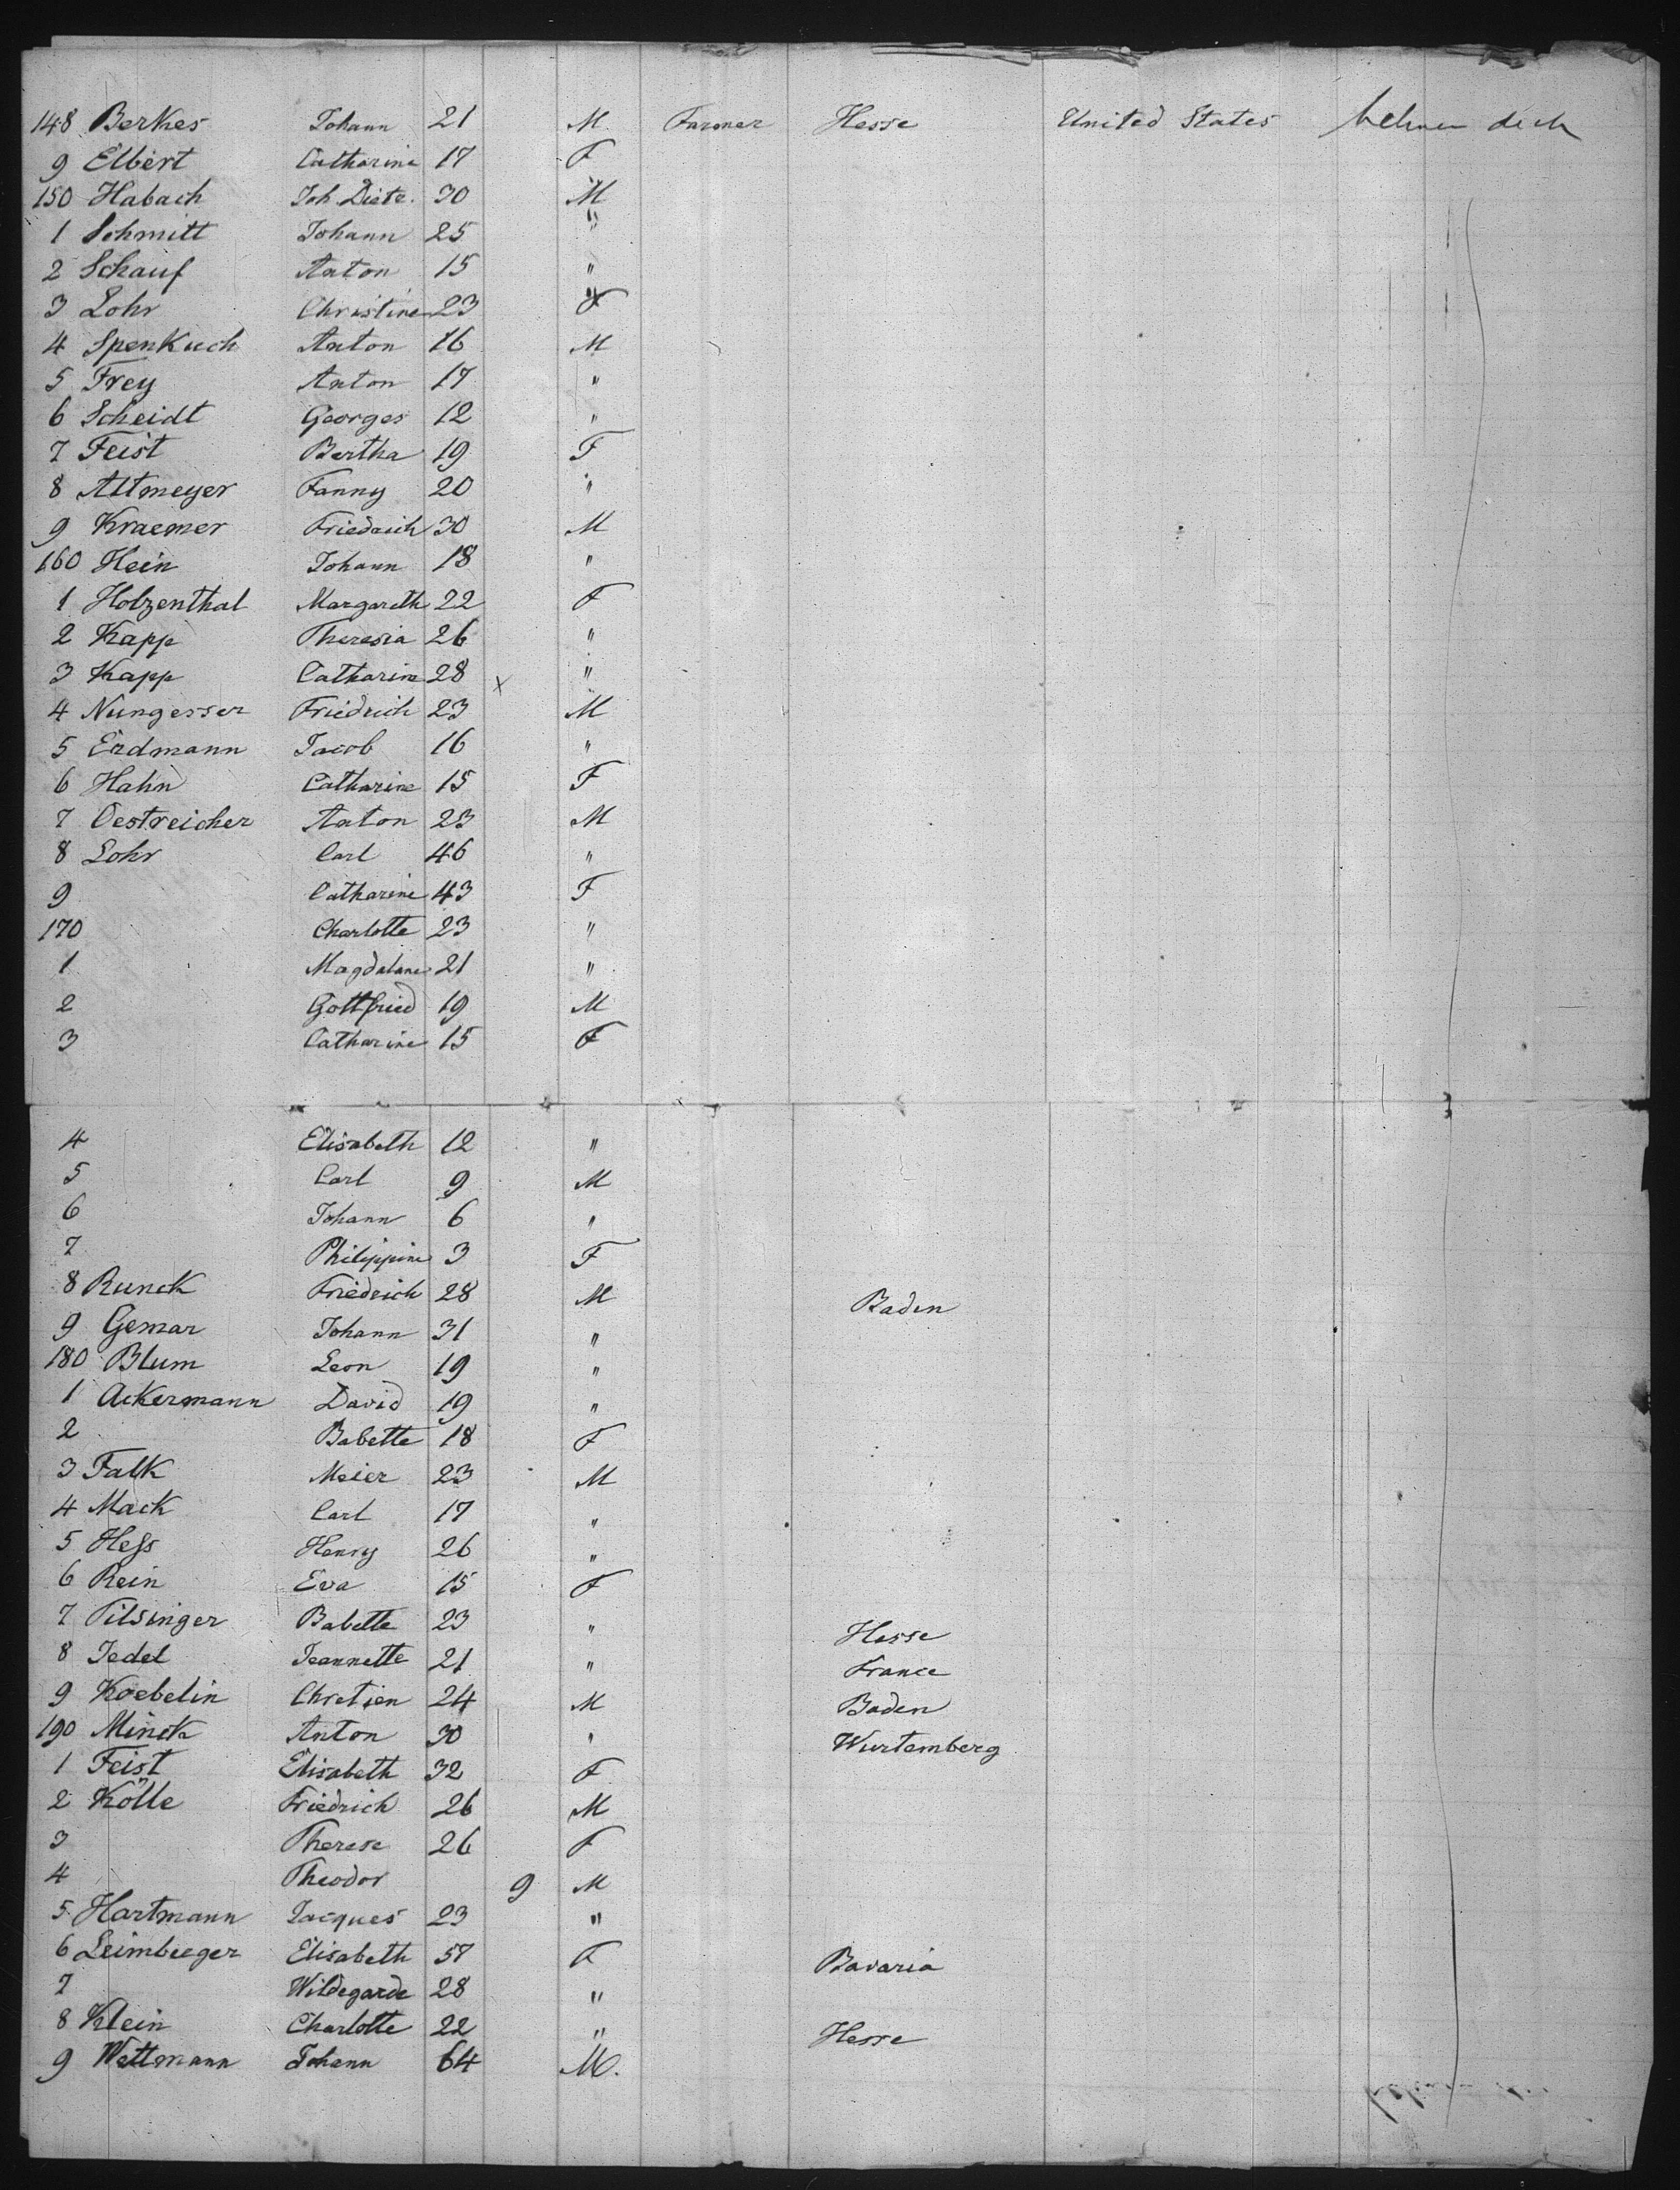 148 Berkes Johann 21 M. Farmer Hesse United States between deck
9 Elbert Catharine 17 F
150 Habach Joh. Diete. 30 M
1 Schmitt Johann 25 "
2 Schauf Anton 15 "
3 Lohr Christine 23 F
4 Spenkuch Anton 16 M
5 Frey Anton 17 "
6 Scheidt Georges 12 "
7 Feist Bertha 19 F
8 Altmeyer Fanny 20 "
9 Kraemer Friedrich 30 M
160 Hein Johann 18 "
1 Holzenthal Margareth 22 F
2 Kapp Theresia 26 "
3 Kapp Catharine 28 x "
4 Nungesser Friedrich 23 M
5 Erdmann Jacob 16 "
6 Hahn Catharine 15 F
7 Oestreicher Anton 23 M
8 Lohr Carl 46 "
9 Catharine 43 F
170 Charlotte 23 "
1 Magdalane 21 "
2 Gottfried 19 M
3 Catharine 15 F
4 Elisabeth 12 "
5 Carl 9 M
6 Johann 6 "
7 Philippine 3 F
8 Runck Friedrich 28 M Baden
9 Gemar Johann 31 "
180 Blum Leon 19 "
1 Ackermann David 19 "
2 Babette 18 F
3 Falk Meier 23 M
4 Mack Carl 17 "
5 Heſs Henry 26 "
6 Rein Eva 15 F
7 Pilsinger Babette 23 " Hesse
8 Jedel Jeannette 21 " France
9 Koebelin Chretien 24 M Baden
190 Minck Anton 30 " Wurtemberg
1 Feist Elisabeth 32 F
2 Kölle Friedrich 26 M
3 Therese 26 F
4 Theodor 9 M
5 Hartmann Jacques 23 "
6 Leimbeeger Elisabeth 57 F Bavaria
7 Wildegarde 28 "
8 Klein Charlotte 22 " Hesse
9 Wettmann Johann 64 M.